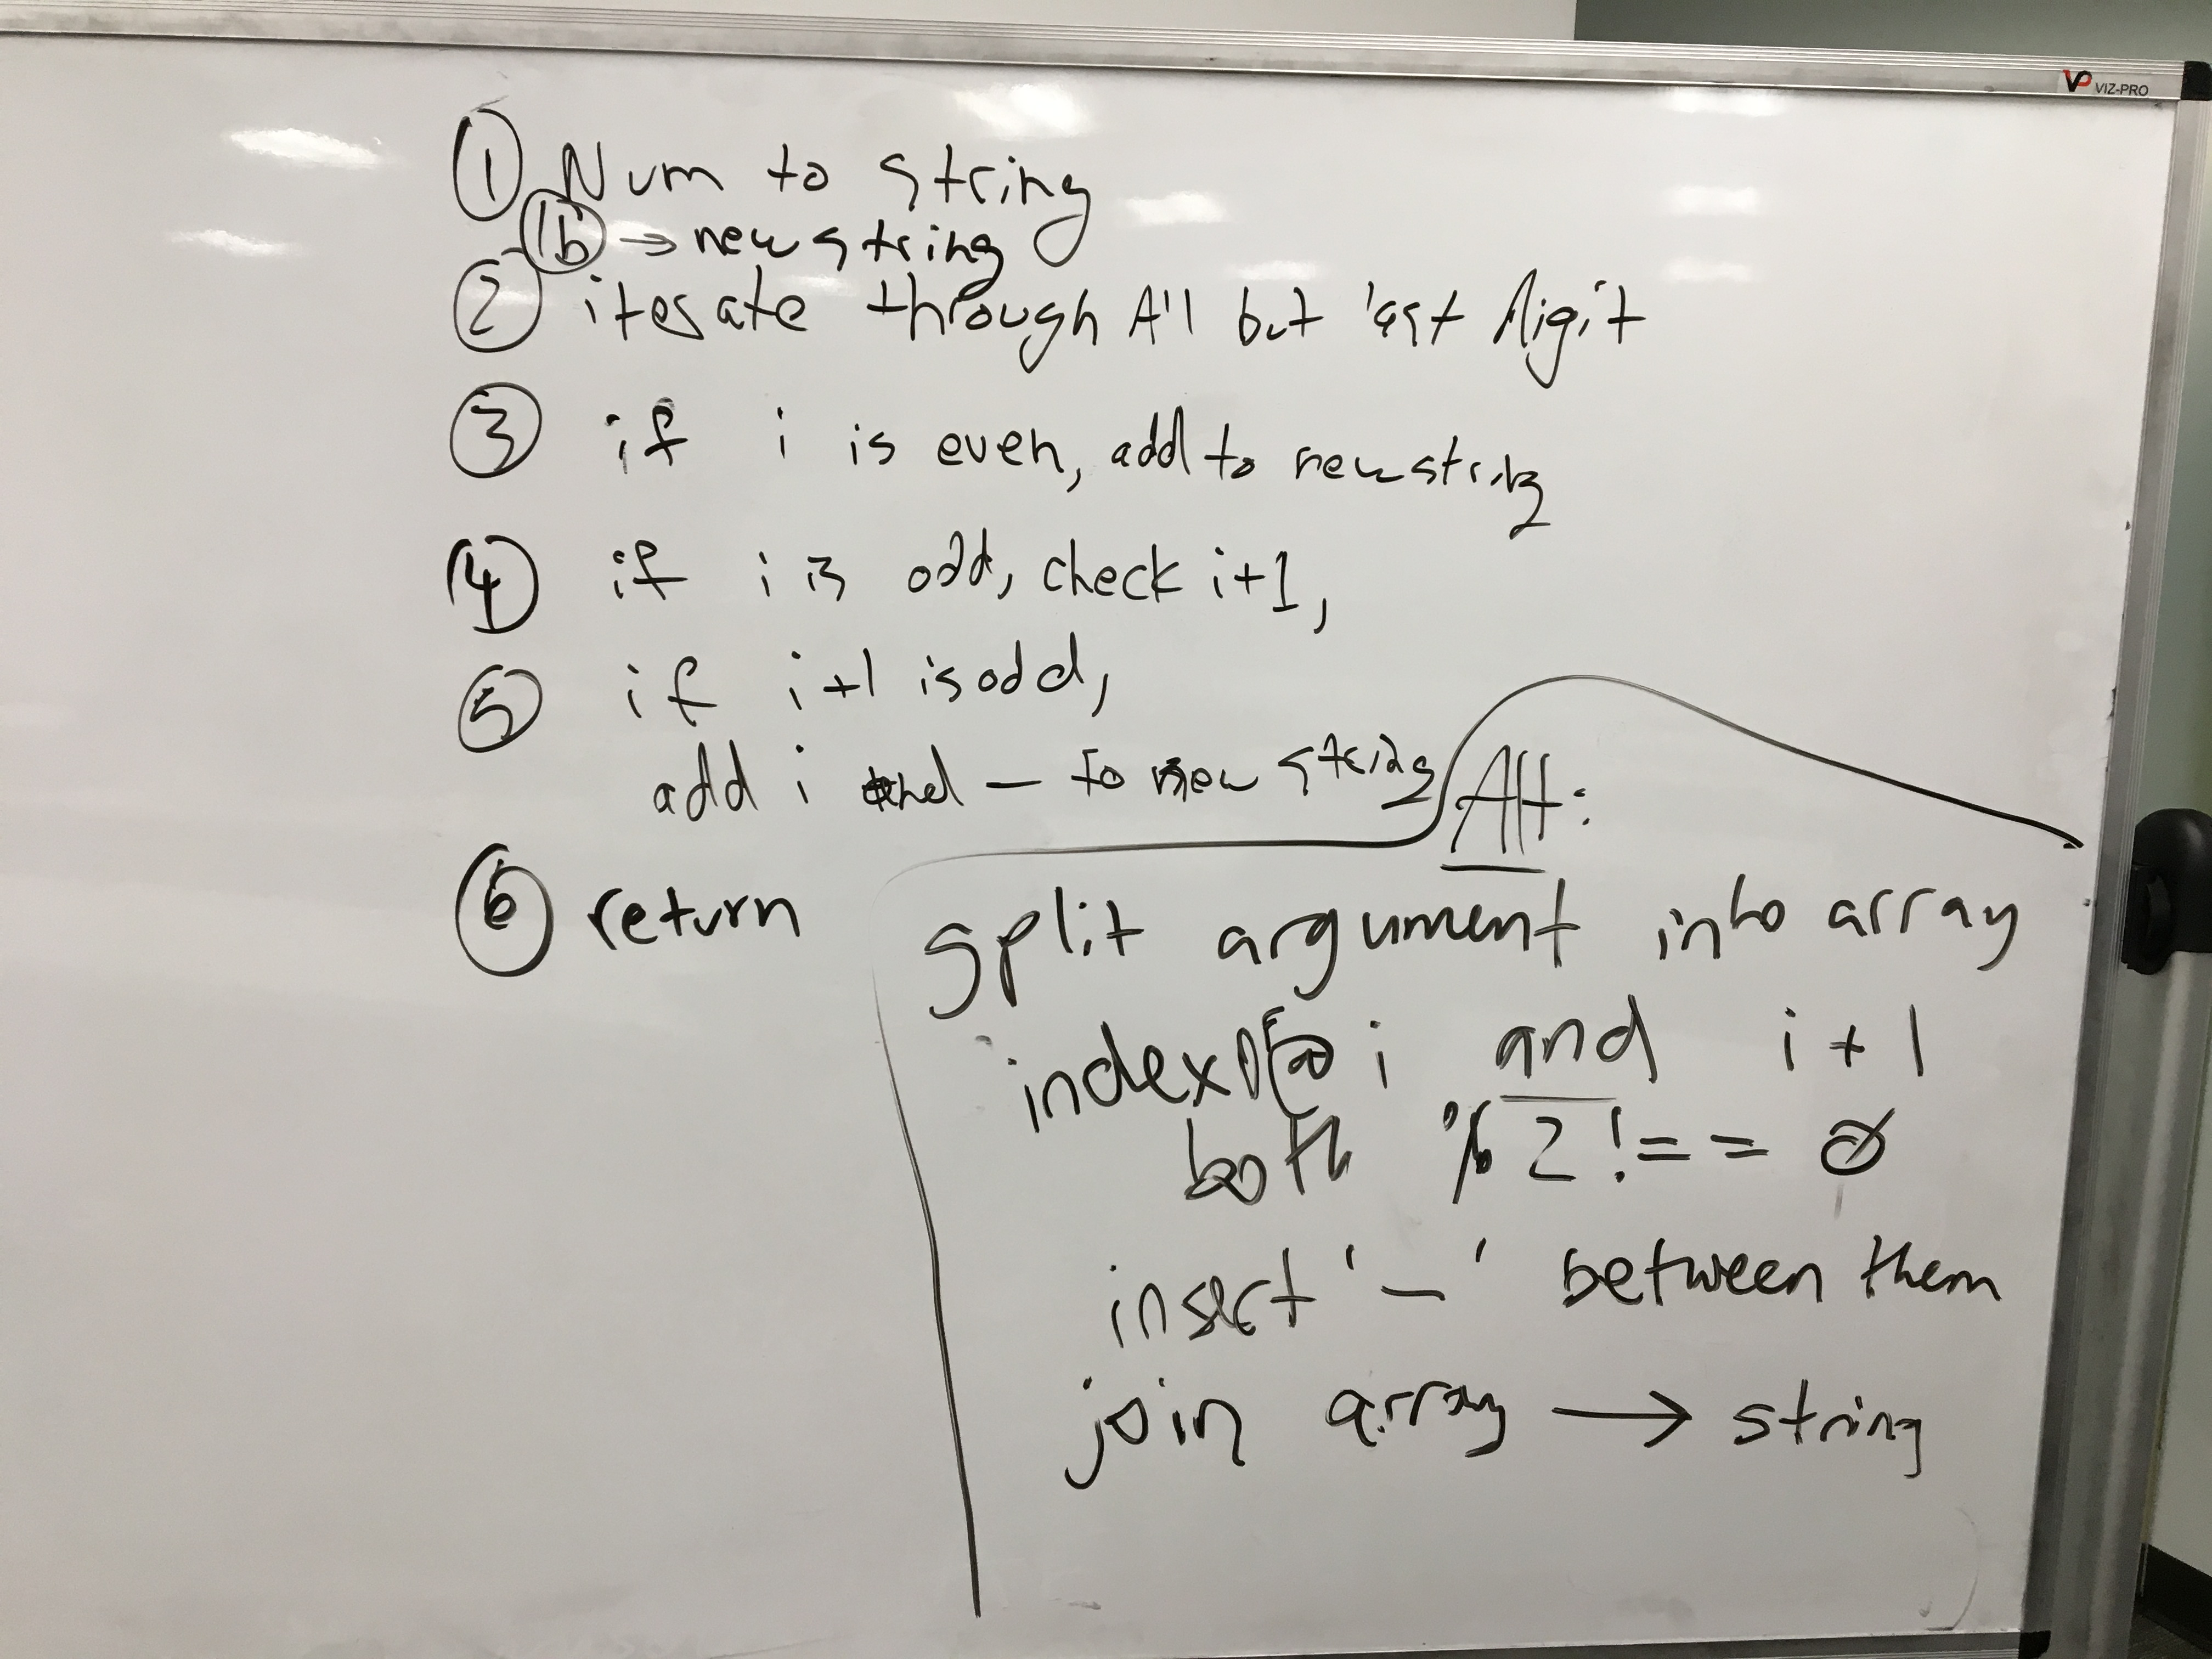 VP VIZ-PRO
① Num to string
1b → newstring
② iterate through All but last digit
③ if i is even, add to newstring
④ if i is odd, check i+1,
⑤ if i+1 is odd,
add i and — to new string
⑥ return
Alt:
split argument into array
indexOf@ i and i + 1
both % 2 !== 0
insert '—' between them
join array → string